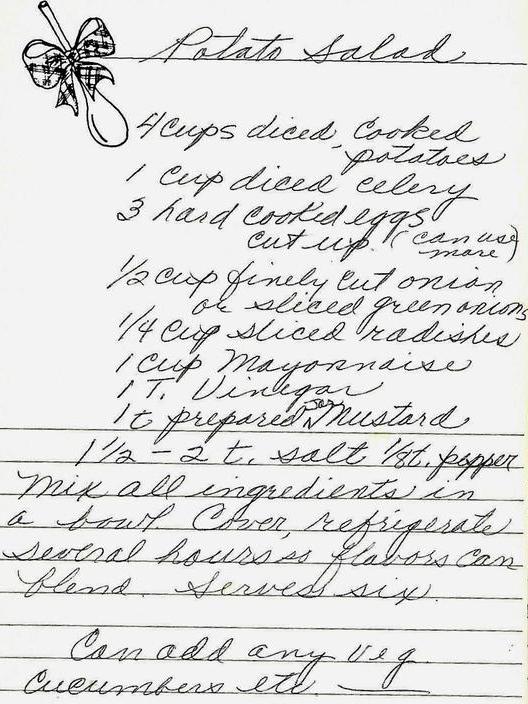 Potato Salad
4 cups diced, cooked
potatoes
1 cup diced celery
3 hard cooked eggs
cut up. (can use
more)
1/2 cup finely cut onion
or sliced green onions
1/4 cup sliced radishes
1 cup Mayonnaise
1 T. Vinegar
1 t prepared Mustard
1 1/2 - 2 t. salt 1/8 t. pepper
Mix all ingredients in
a bowl. Cover, refrigerate
several hours so flavors can
blend. Serves six.
Can add any veg.
Cucumbers etc.